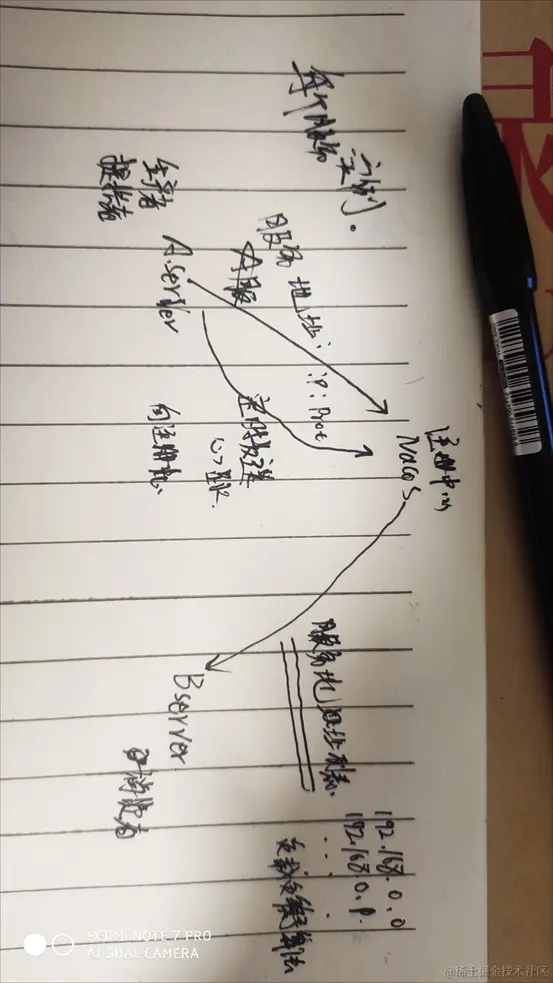 每个服务实例.
注册中心
Nacos
服务地址:
ip:Prot
A服
生产者
提供者
A.server
定时发送
心跳.
向注册中心
Bserver
消费者
服务地址列表.
192.168.0.0
192.168.0.P.
. . . .
负载均衡算法
REDMI NOTE 7 PRO
AI DUAL CAMERA
@稀土掘金技术社区